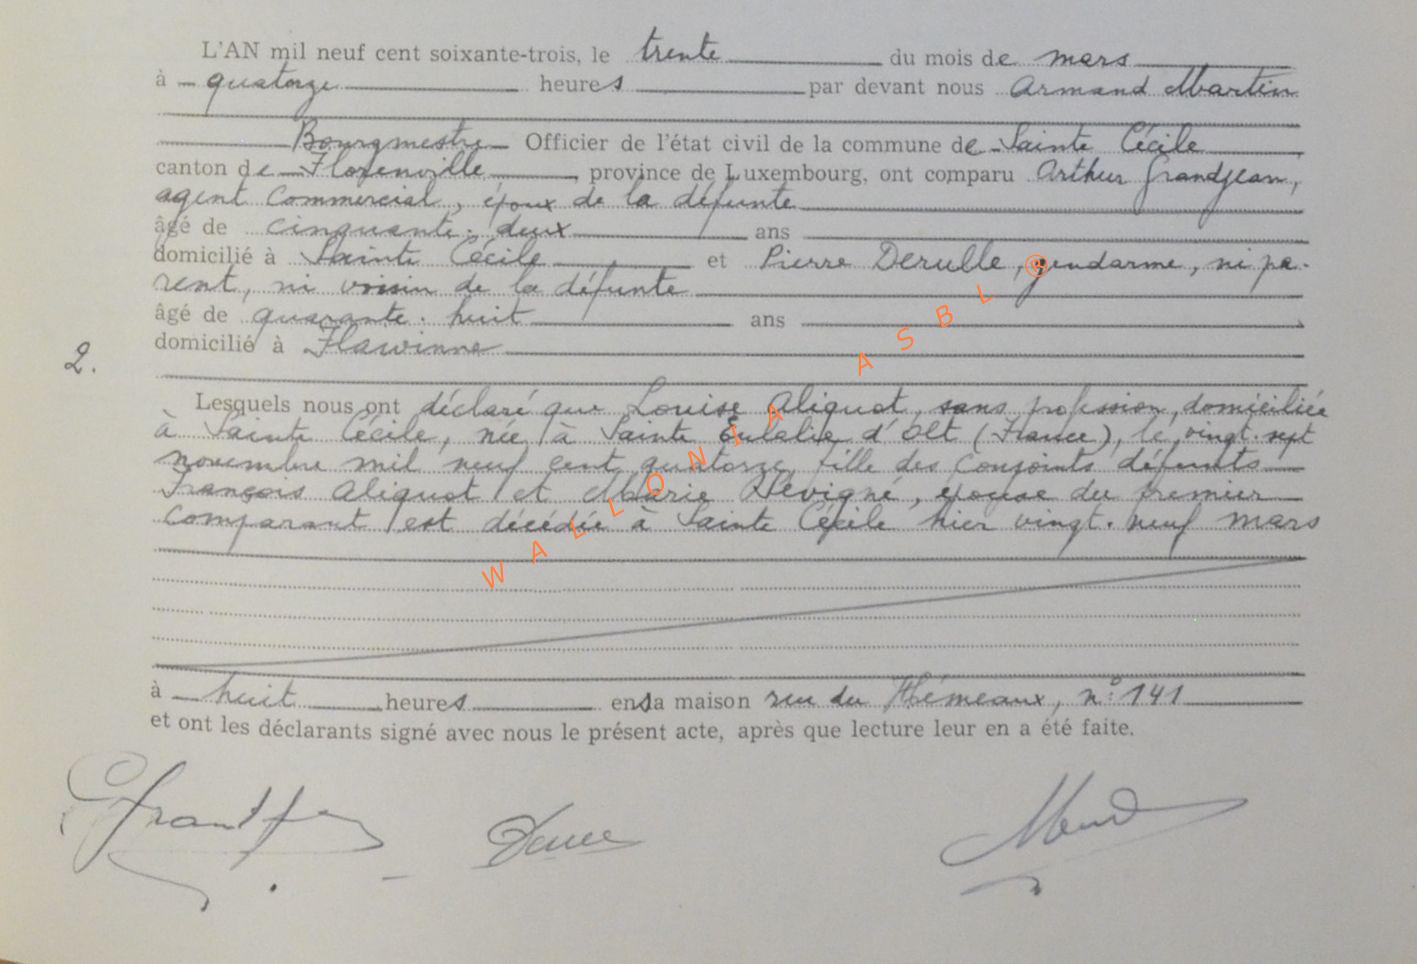 L'AN mil neuf cent soixante-trois, le trente du mois de mars
à quatorze heures par devant nous Armand Martin
Bourgmestre Officier de l'état civil de la commune de Sainte Cécile
canton de Florenville, province de Luxembourg, ont comparu Arthur Grandjean,
agent commercial, époux de la défunte
âgé de cinquante-deux ans
domicilié à Sainte Cécile et Pierre Derulle, gendarme, ni pa-
rent, ni voisin de la défunte
âgé de quarante-huit ans
domicilié à Flawinne
2.
Lesquels nous ont déclaré que Louise Aliquot, sans profession, domiciliée
à Sainte Cécile, née à Sainte Eulalie d'Olt (France), le vingt-sept
novembre mil neuf cent quatorze, fille des conjoints défunts
François Aliquot et Marie Sévigné, épouse du premier
comparant est décédée à Sainte Cécile hier vingt-neuf mars
à huit heures en sa maison rue du n° 141
et ont les déclarants signé avec nous le présent acte, après que lecture leur en a été faite.
WALLONIA ASBL ©